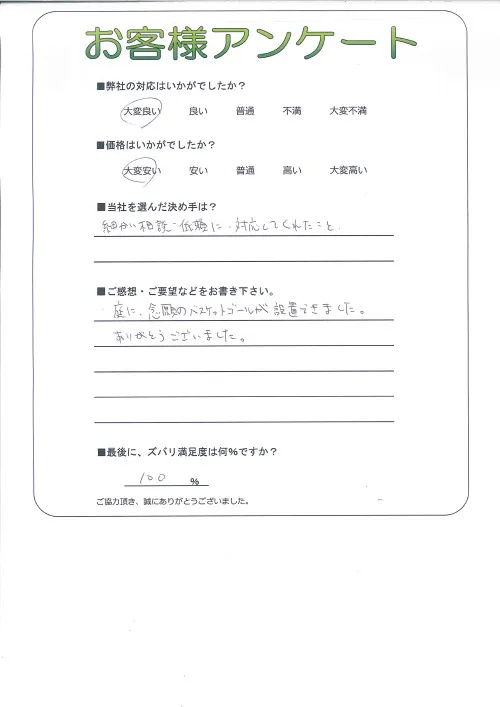 お客様アンケート
■弊社の対応はいかがでしたか？
大変良い 良い 普通 不満 大変不満
■価格はいかがでしたか？
大変安い 安い 普通 高い 大変高い
■当社を選んだ決め手は？
細かい相談・依頼に、対応してくれたこと。
■ご感想・ご要望などをお書き下さい。
庭に、念願のバスケットゴールが設置できました。
ありがとうございました。
■最後に、ズバリ満足度は何％ですか？
100 ％
ご協力頂き、誠にありがとうございました。